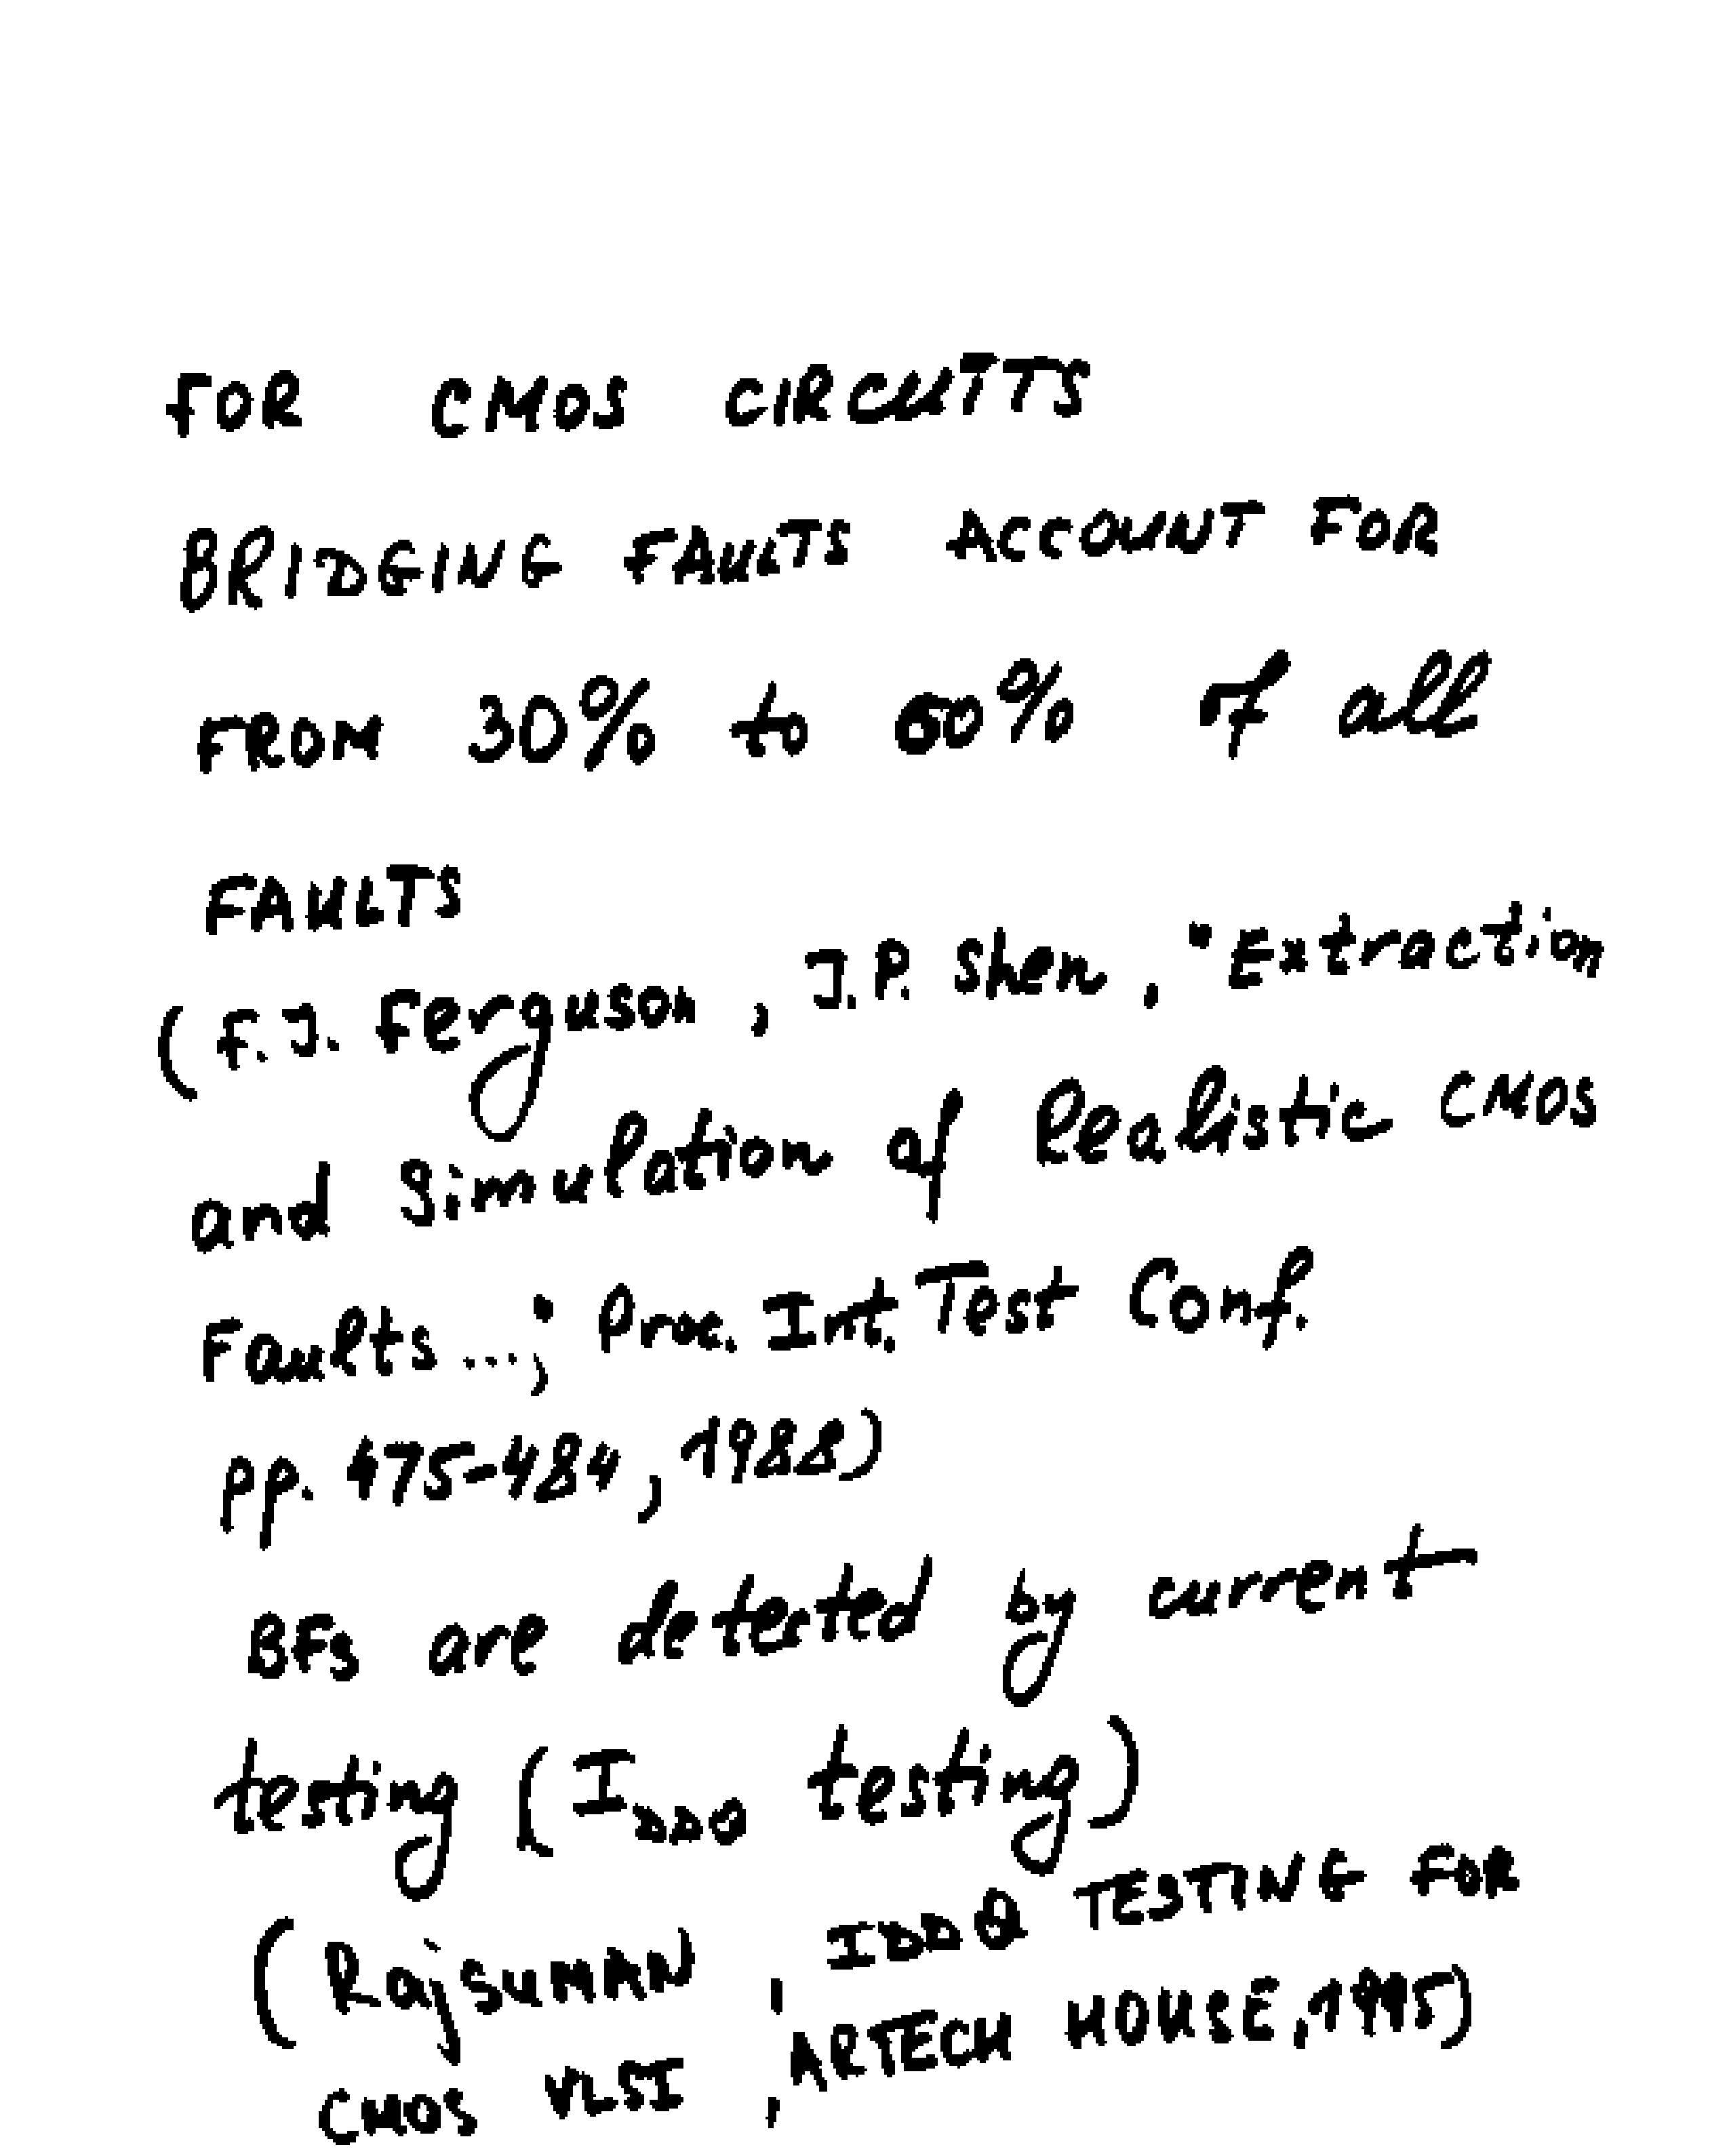 FOR CMOS CIRCUITS
BRIDGING FAULTS ACCOUNT FOR
FROM 30% to 60% of all
FAULTS
(F.J. Ferguson, J.P. Shen, "Extraction
and Simulation of Realistic CMOS
Faults...", Proc. Int. Test Conf.
pp. 475-484, 1988)
BFs are detected by current
testing (IDDQ testing)
(RajSUMAN, IDDQ TESTING FOR
CMOS VLSI, ARTECH HOUSE, 1995)